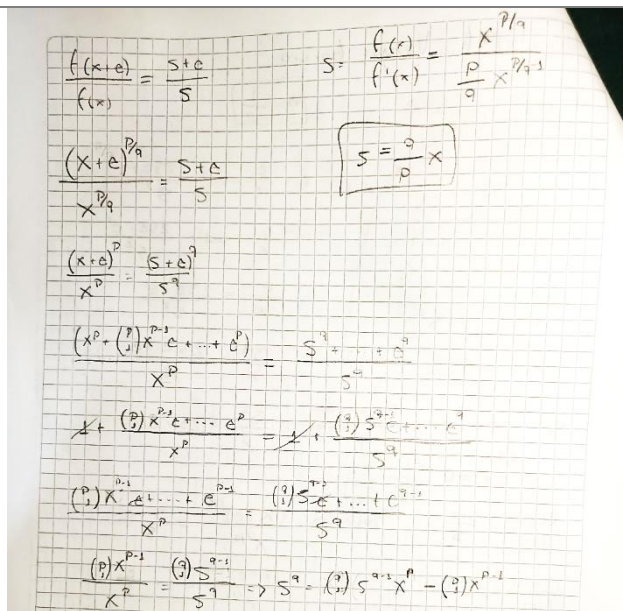 f(x+e)/f(x) = (s+e)/s
s = f(x)/f'(x) = x^(p/q) / ((p/q) x^(p/q-1))
(x+e)^(p/q) / x^(p/q) = (s+e)/s
s = (q/p) x
(x+e)^p / x^p = (s+e)^q / s^q
(x^p + (p 1) x^(p-1) e + ... + e^p) / x^p = (s^q + ... + e^q) / s^q
1 + ((p 1) x^(p-1) e + ... e^p) / x^p = 1 + ((q 1) s^(q-1) e + ... e^q) / s^q
((p 1) x^(p-1) e + ... + e^(p-1)) / x^p = ((q 1) s^(q-1) e + ... + e^(q-1)) / s^q
(p 1) x^(p-1) / x^p = (q 1) s^(q-1) / s^q => s^q = (q 1) s^(q-1) x^p - (p 1) x^(p-1)